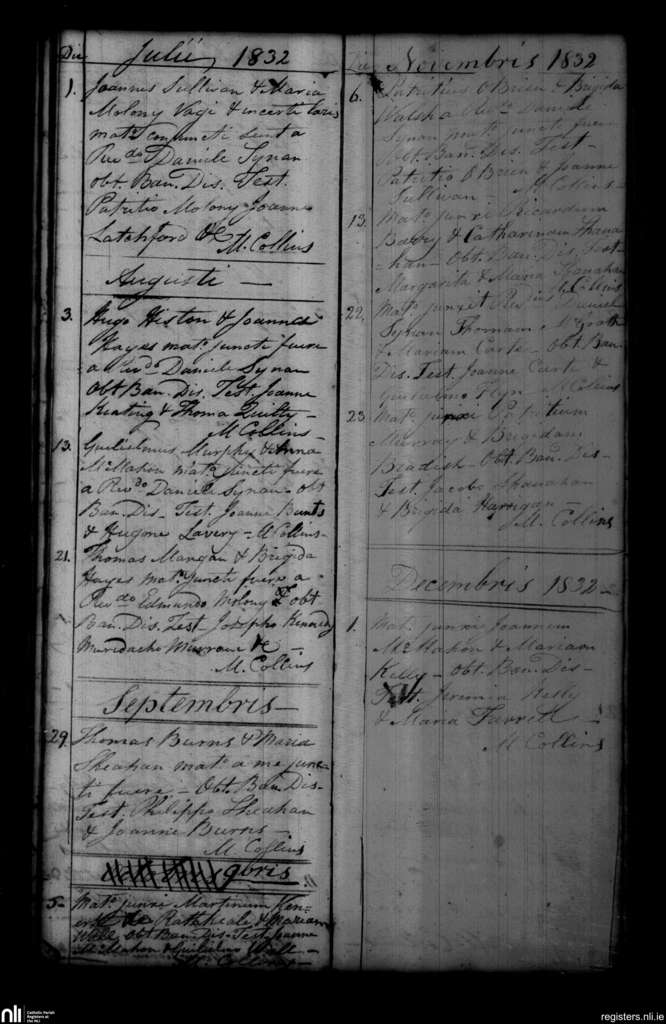 Die Julii 1832
1. Joannes Sullivan & Maria
Molony Vagi & incerti laris
mato conjuncti sunt a
Revdo Daniele Synan
obt. Ban. Dis. Test.
Patritio Molony Joanne
Latchford &c M. Collins
Augusti
3. Hugo Histon & Joanna
Hayes mato juncti fuere
a Revdo Daniele Synan
Obt Ban. Dis. Test. Joanne
Keating & Thoma Quilty
M Collins
13. Gulielmus Murphy & Anna
McMahon mato juncti fuere
a Revdo Daniele Synan - obt
Ban. Dis - Test. Joanne
& Hugone Lavery - M Collins
21. Thomas Mangan & Brigida
Hayes mato juncti fuere a
Revdo Edmundo Molony & obt
Ban. Dis. Test Josepho Kennedy
Muridacho &c
M. Collins
Septembris
29. Thomas Burns & Maria
Sheahan mato a me junc-
ti fuere - Obt. Ban. Dis-
Test. Philippo Sheahan
& Joanne Burns
M Collins
9bris
5 Mato junxi Martinum
de Rathkeale & Mariam
Obt Ban. Dis. Test. Joanne
McMahon & Gulielmo
M. Collins
Die Novembris 1832
6. Patritius O Brien & Brigida
Walsh a Revdo Daniele
Synan mato juncti fuere
Obt. Ban. Dis. Test-
Patritio O Brien & Joanne
Sullivan - M. Collins
13. Mato junxi Ricardum
Barry & Catharinam Shana
-han - Obt. Ban. Dis. Test-
Margarita & Maria Shanahan
M Collins
22. Mato junxit Revdus Daniel
Synan Thomam McGrath
& Mariam Carte - Obt. Ban.
Dis. Test. Joanne Carte &
Gulielmo Flyn - M Collins
23. Mato junxi Patritium
Murray & Brigidam
Obt. Ban. Dis-
Test. Jacobo Shanahan
& Brigida Harrigan
M. Collins
Decembris 1832
1. Mato junxi Joannem
McMahon & Mariam
Kelly - Obt. Ban. Dis-
Test. Jeremia Kelly
& Maria
M Collins
nli Catholic Parish
Registers at
the NLI
registers.nli.ie